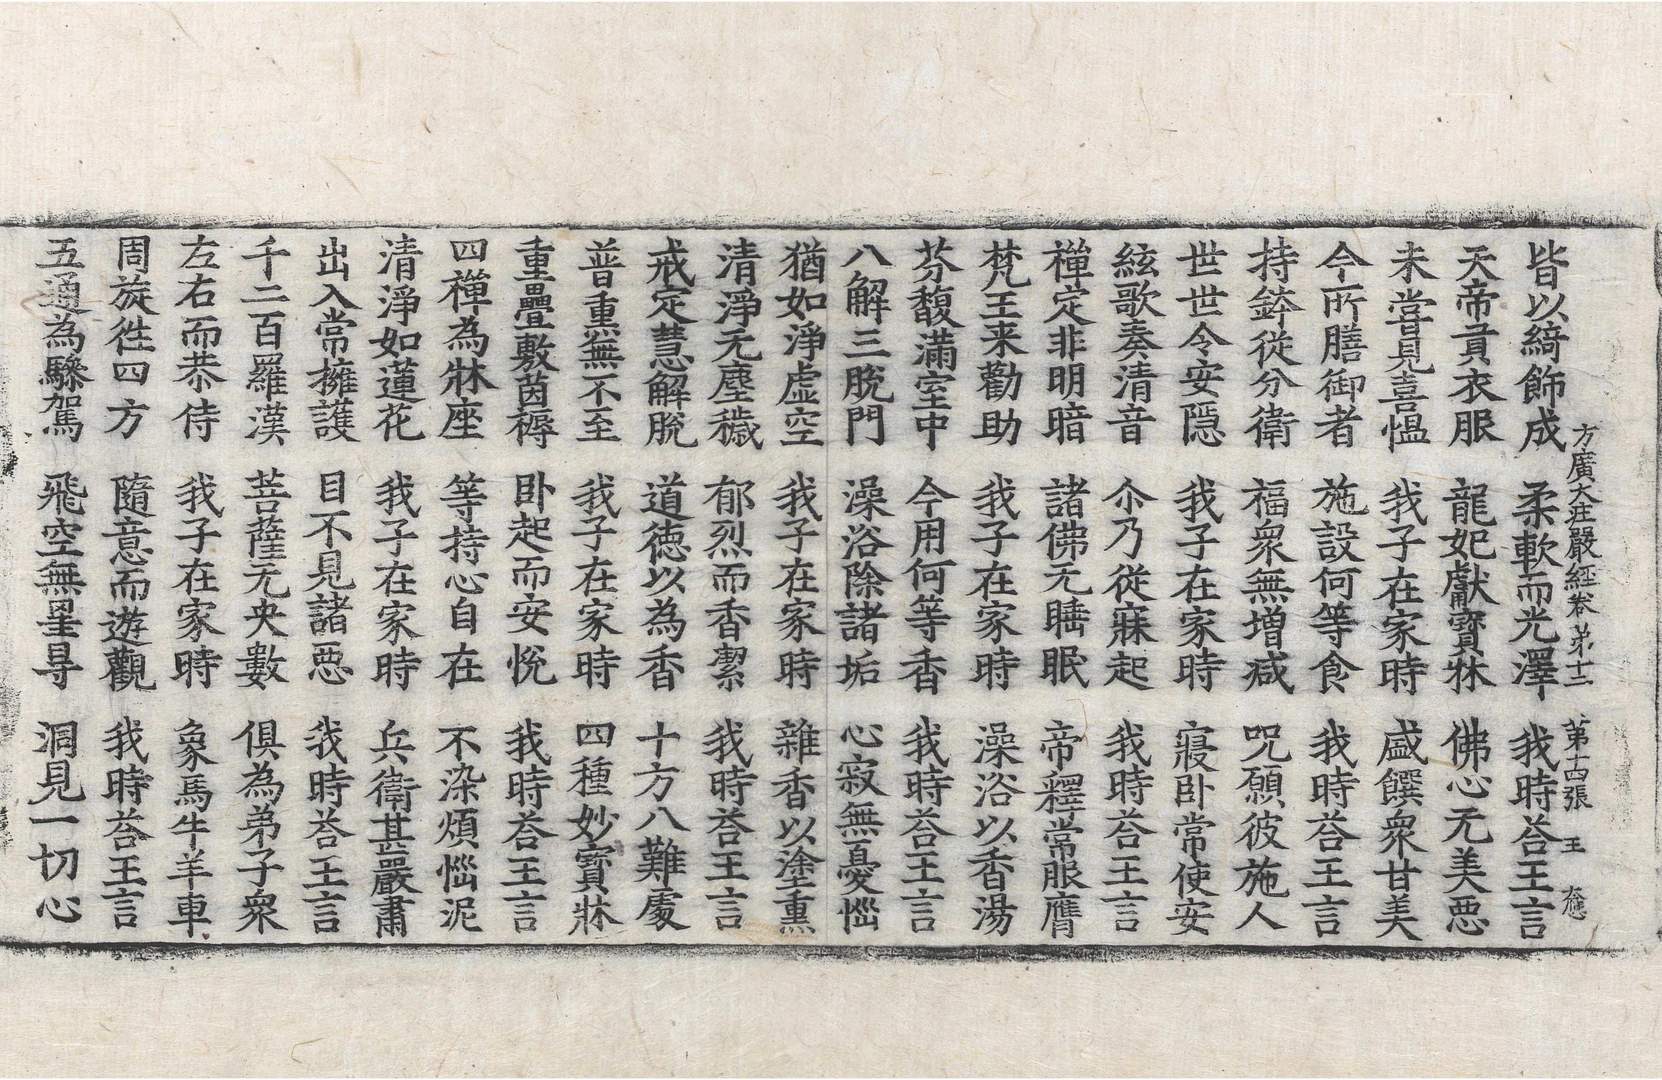 方廣大莊嚴經卷第十二 第十四張 王 存應
皆以綺飾成 柔軟而光澤 我時荅王言
天帝貢衣服 龍妃獻寶牀 佛心无美惡
未嘗見喜慍 我子在家時 盛饌衆甘美
今所膳御者 施設何等食 我時荅王言
持鉢從分衛 福衆無增減 呪願彼施人
世世令安隱 我子在家時 寢卧常使安
絃歌奏清音 尒乃從寐起 我時荅王言
禪定非明暗 諸佛无睡眠 帝釋常服膺
梵王来勸助 我子在家時 澡浴以香湯
芬馥滿室中 今用何等香 我時荅王言
八解三脫門 澡浴除諸垢 心寂無憂惱
猶如淨虛空 我子在家時 雜香以塗熏
清淨无塵穢 郁烈而香潔 我時荅王言
戒定慧解脫 道德以為香 十方八難處
普熏無不至 我子在家時 四種妙寶牀
重疊敷茵褥 卧起而安悅 我時荅王言
四禪為牀座 等持心自在 不染煩惱泥
清淨如蓮花 我子在家時 兵衛甚嚴肅
出入常擁護 目不見諸惡 我時荅王言
千二百羅漢 菩薩无央數 俱為弟子衆
左右而恭侍 我子在家時 象馬牛羊車
周旋徃四方 隨意而遊觀 我時荅王言
五通為驂駕 飛空無罣㝵 洞見一切心